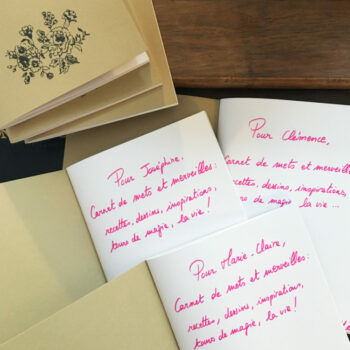 Pour Joséphine,
Carnet de mets et merveilles :
recettes, dessins, inspirations,
tours de magie, la vie !
Pour Clémence,
Carnet de mets et merveilles
recettes, dessins, inspirations,
de magie, la vie ...
Pour Marie-Claire,
Carnet de mets et merveilles :
recettes, dessins, inspirations,
tours de magie, la vie !